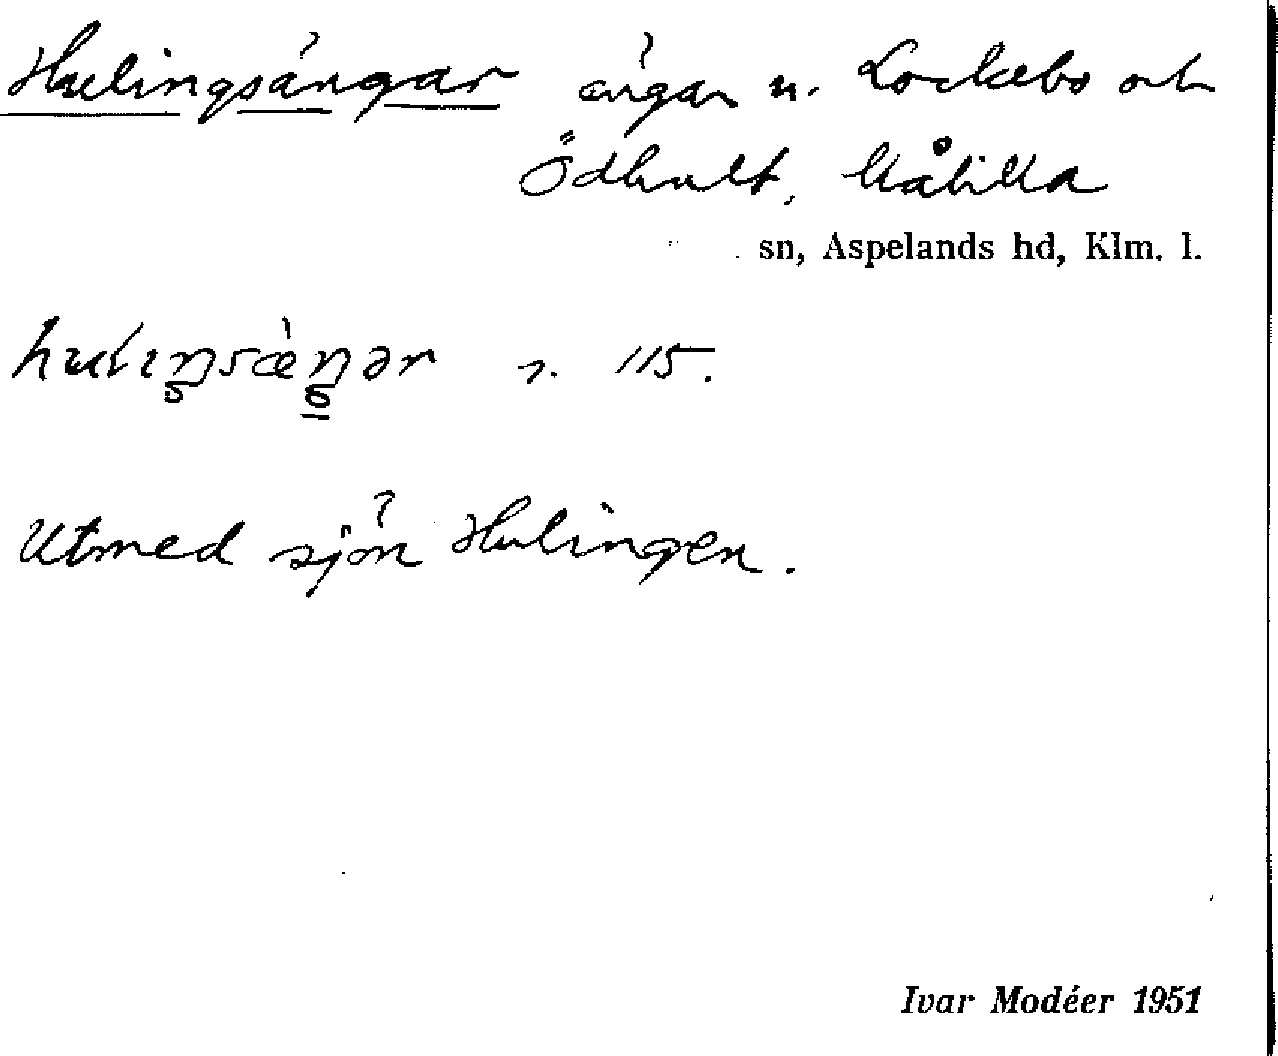 Hulingsängar ängar u. Lockebo och
Ödhult, Målilla
sn, Aspelands hd, Klm. l.
115.
Utmed sjön Hulingen.
Ivar Modéer 1951